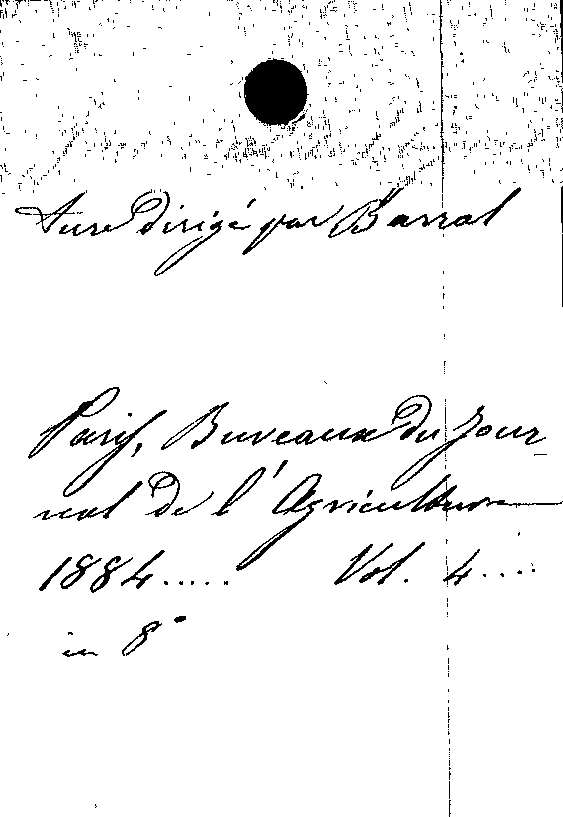 ture dirigé par Barral
Paris, Bureaux du Jour
nal de l'Agriculture
1884..... Vol. 4....
in 8°